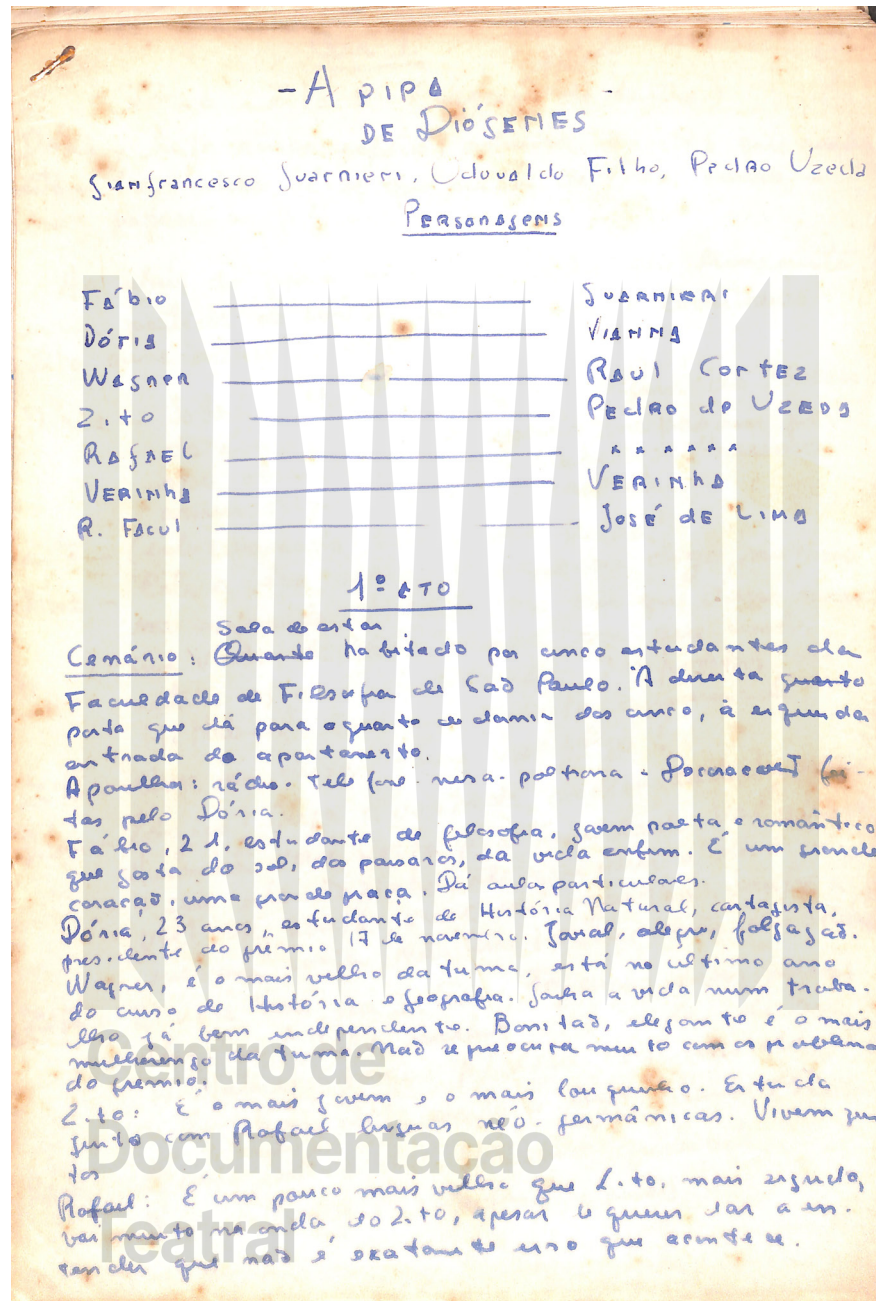 - A PIPA -
DE DIÓGENES
Gianfrancesco Guarnieri, Oduvaldo Filho, Pedro Uzeda
PERSONAGENS
Fábio GUARNIERI
Dória VIANNA
Wagner RAUL CORTEZ
Zito PEDRO de UZEDA
RAFAEL x x x x x x
VERINHA VERINHA
R. FACUL JOSÉ de LIMA
1º ATO
Sala de estar
Cenário: Quarto habitado por cinco estudantes da
Faculdade de Filosofia de São Paulo. À direita quarto
porta que dá para o quarto de dormir dos cinco, à esquerda
entrada do apartamento.
Aparelhos: rádio. Telefone. mesa. poltrona - fei-
tas pelo Dória.
Fábio, 21, estudante de filosofia, jovem poeta e romântico
que gosta do sol, dos pássaros, da vida enfim. É um grande
coração, uma grande praça. Dá aulas particulares.
Dória, 23 anos, estudante de História Natural, cartagista,
presidente do grêmio 17 de novembro. Jovial, alegre, folgazão.
Wagner, é o mais velho da turma, está no ultimo ano
do curso de História e Geografia. Ganha a vida num traba-
lho já bem independente. Bonitão, elegante é o mais
mulherengo da turma. Não se preocupa muito com os problemas
do grêmio.
Zito: É o mais jovem e o mais louquinho. Estuda
junto com Rafael linguas néo-germânicas. Vivem jun
tos
Rafael: É um pouco mais velho que Zito, mais sisudo,
vai muito na onda do Zito, apesar de querer dar a en-
tender que não é exatamente isso que acontece.
Centro de
Documentação
Teatral